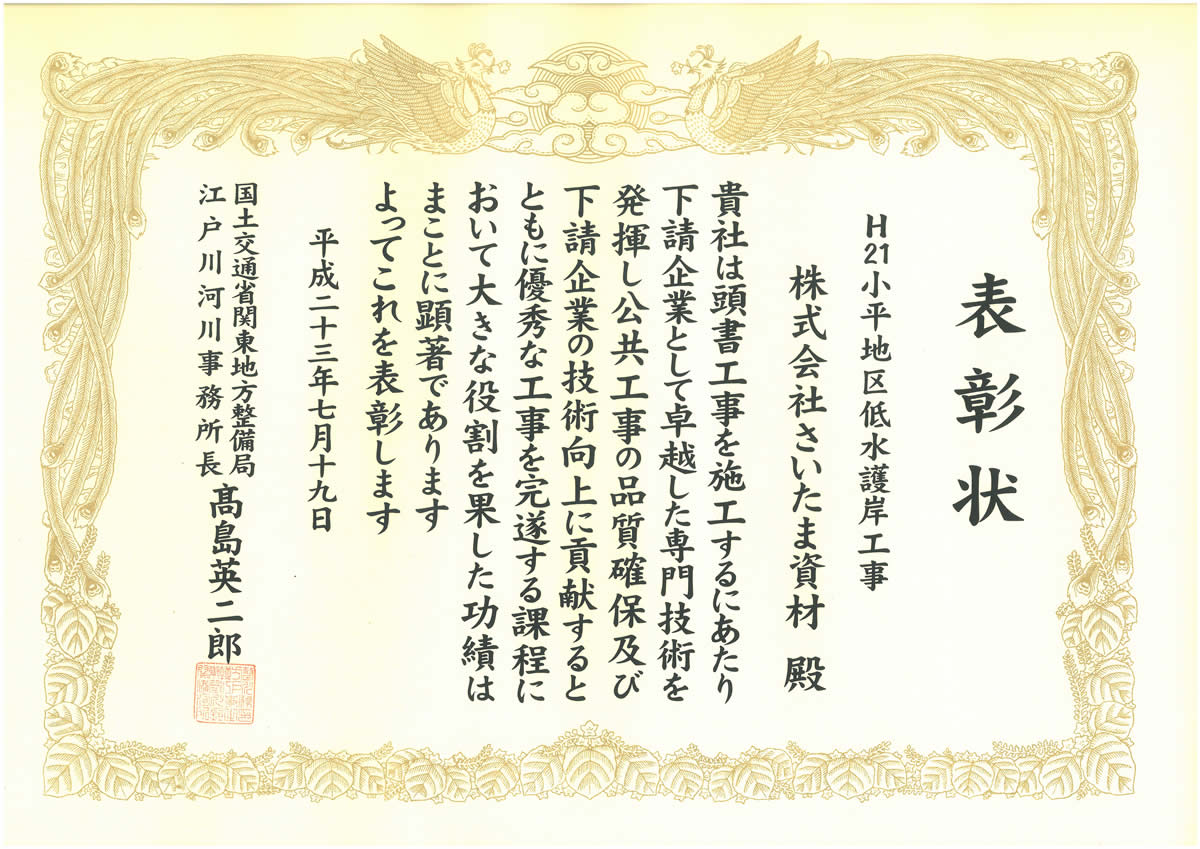 表彰状
H21小平地区低水護岸工事
株式会社さいたま資材 殿
貴社は頭書工事を施工するにあたり
下請企業として卓越した専門技術を
発揮し公共工事の品質確保及び
下請企業の技術向上に貢献すると
ともに優秀な工事を完遂する課程に
おいて大きな役割を果した功績は
まことに顕著であります
よってこれを表彰します
平成二十三年七月十九日
国土交通省関東地方整備局
江戸川河川事務所長 髙島英二郎